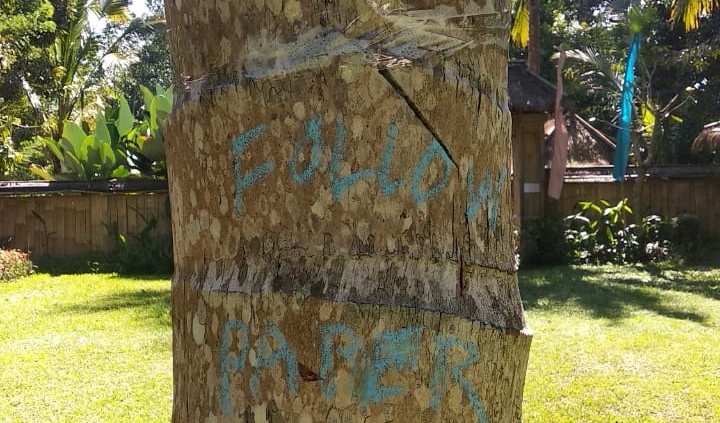 FOLLOW
PAPER